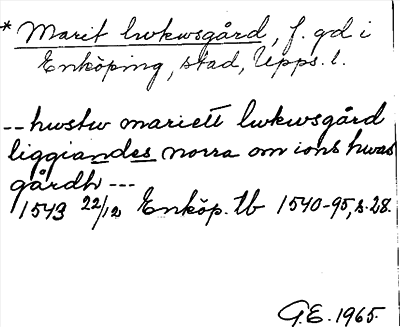 * Marit lwkwsgård, f. gd i
Enköping, stad, Upps. l.
-- hwstw mariett lwkwsgård
liggiandes norra om ions hwas
gårdh ---
1543 22/12 Enköp. tb 1540-95, s. 28.
G.E. 1965.